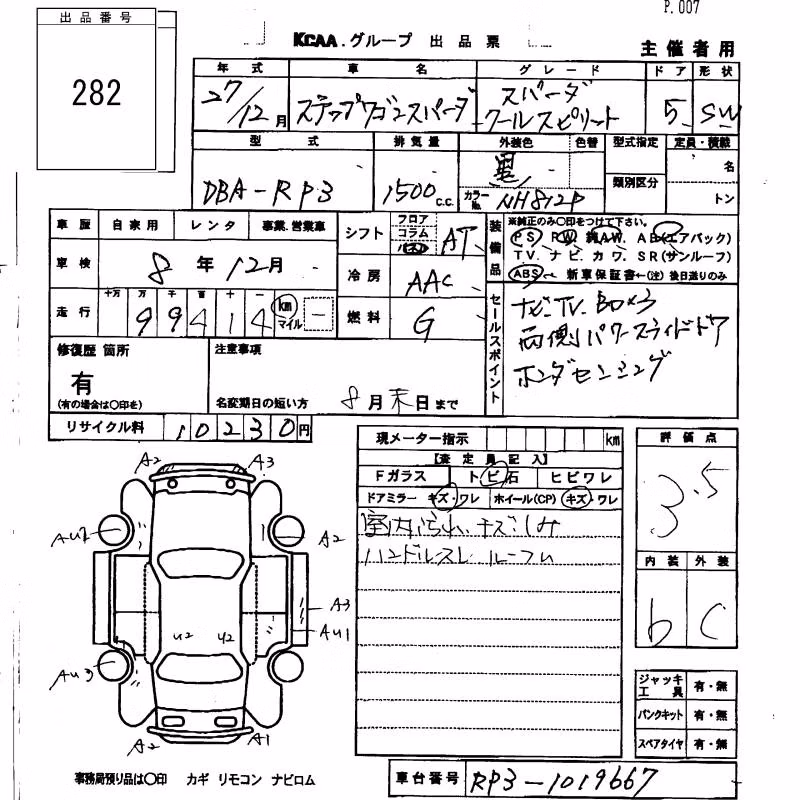 P.007
出品番号
282
KCAA.グループ 出品票
主催者用
年式 車名 グレード ドア 形状
27/12月 ステップワゴンスパーダ スパーダ クールスピリット 5 SW
型式 排気量 外装色 色替 型式指定 定員・積載
DBA-RP3 1500c.c. 黒 カラーNo. NH812P 類別区分 名 トン
車歴 自家用 レンタ 事業.営業車
車検 8年12月
走行 十万 万 千 百 十 一
99414 km マイル
シフト フロア コラム AT
冷房 AAC
燃料 G
装備品 ※純正のみ○印をつけて下さい。
PS RW 純AW. AB(エアバック)
TV. ナビ. カワ. SR(サンルーフ)
ABS 新車保証書←(注)後日送りのみ
セールスポイント
ナビ.TV.
両側パワースライドドア
ホンダセンシング
修復歴 箇所
有
(有の場合は○印を)
注意事項
名変期日の短い方 8月末日まで
リサイクル料 10230円
現メーター指示 km
【査定員記入】
Fガラス トビ石 ヒビワレ
ドアミラー キズ・ワレ ホイール(CP) キズ・ワレ
室内 キズ.しみ
ハンドルスレ
評価点
3.5
内装 外装
b C
A2 A3
AU2 A2
A3
U2 U2 AU1
AU3
A2 A1
ジャッキ工具 有・無
パンクキット 有・無
スペアタイヤ 有・無
事務局預り品は○印 カギ リモコン ナビロム
車台番号 RP3-1019667